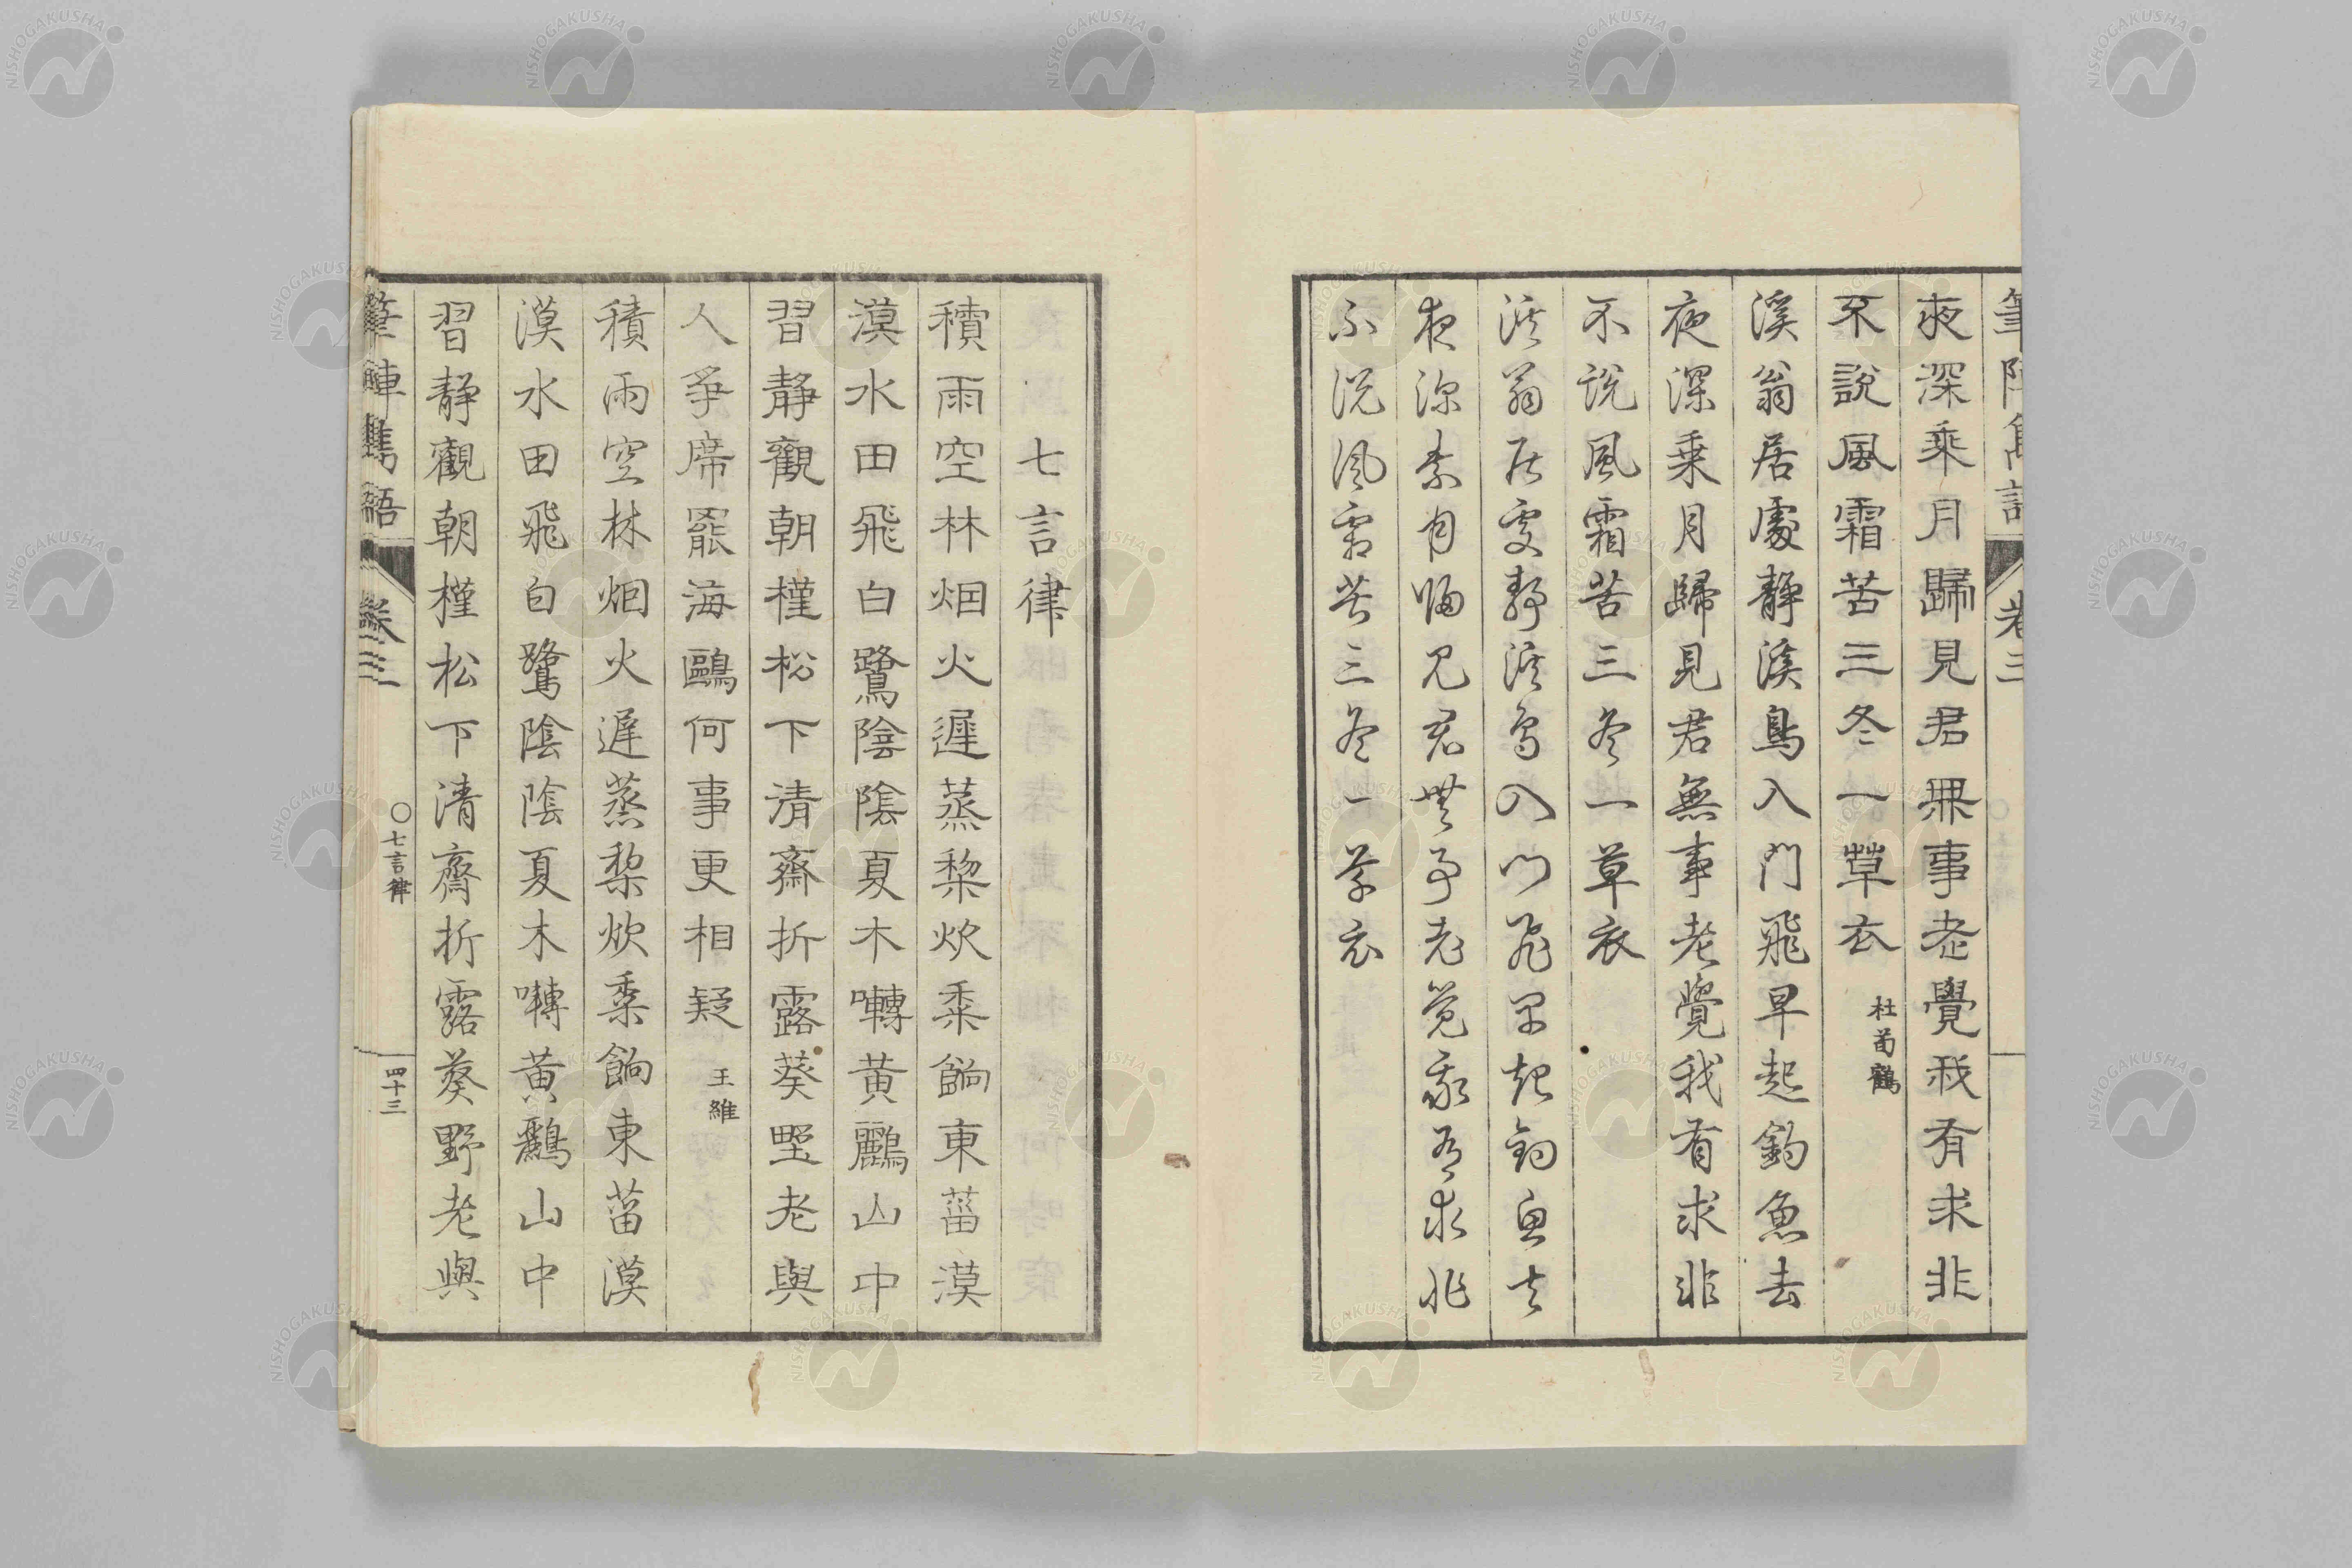 筆陣雋語 卷三
夜深乘月歸見君無事老覺我有求非
不說風霜苦三冬一草衣 杜荀鶴
溪翁居處靜溪鳥入門飛早起釣魚去
夜深乗月歸見君無事老覺我有求非
不説風霜苦三冬一草衣
溪翁居處靜溪鳥入門飛早起釣魚去
夜深乘月歸見君無事老覺我有求非
不説風霜苦三冬一草衣
七言律
積雨空林烟火遲蒸藜炊黍餉東菑漠
漠水田飛白鷺陰陰夏木囀黄鸝山中
習靜觀朝槿松下清齋折露葵野老與
人爭席罷海鷗何事更相疑 王維
積雨空林烟火遲蒸藜炊黍餉東菑漠
漠水田飛白鷺陰陰夏木囀黄鸝山中
習靜觀朝槿松下清齋折露葵野老與
筆陣雋語 卷三 〇七言律 四十三
NISHOGAKUSHA